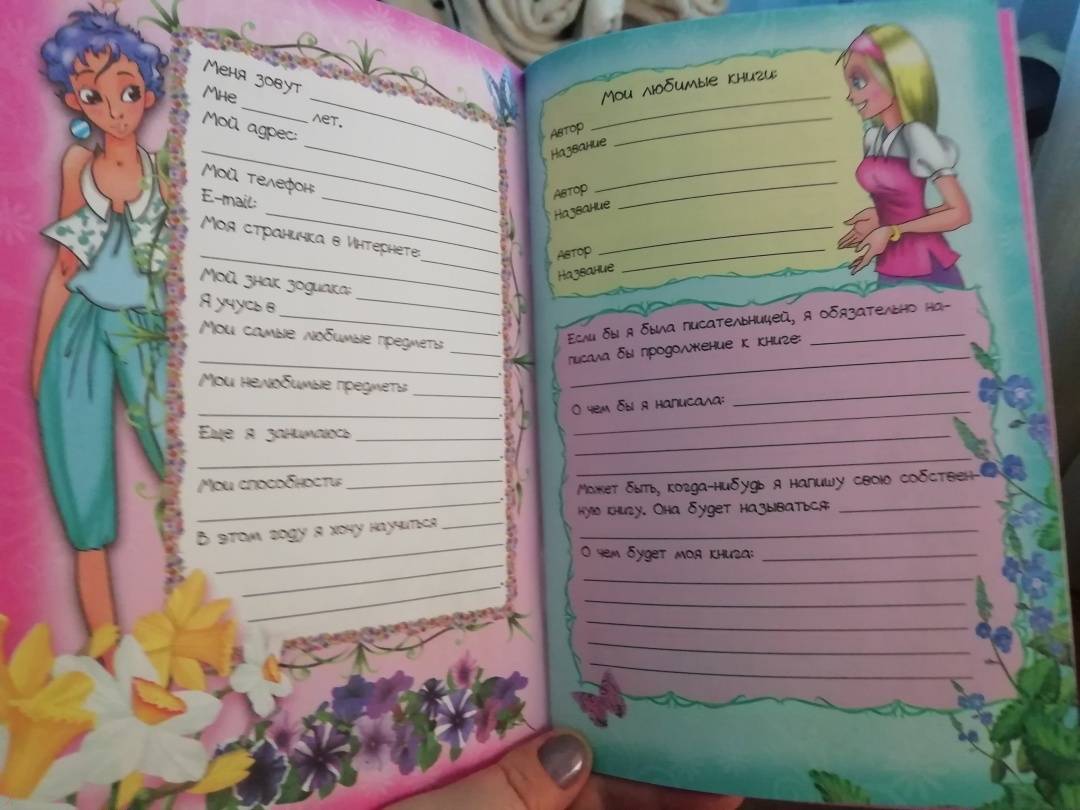 Меня зовут
Мне лет.
Мой адрес:
Мой телефон:
E-mail:
Моя страничка в Интернете:
Мой знак зодиака:
Я учусь в
Мои самые любимые предметы:
Мои нелюбимые предметы:
Еще я занимаюсь
Мои способности:
В этом году я хочу научиться
Мои любимые книги:
Автор
Название
Автор
Название
Автор
Название
Если бы я была писательницей, я обязательно на-
писала бы продолжение к книге:
О чем бы я написала:
Может быть, когда-нибудь я напишу свою собствен-
ную книгу. Она будет называться:
О чем будет моя книга: